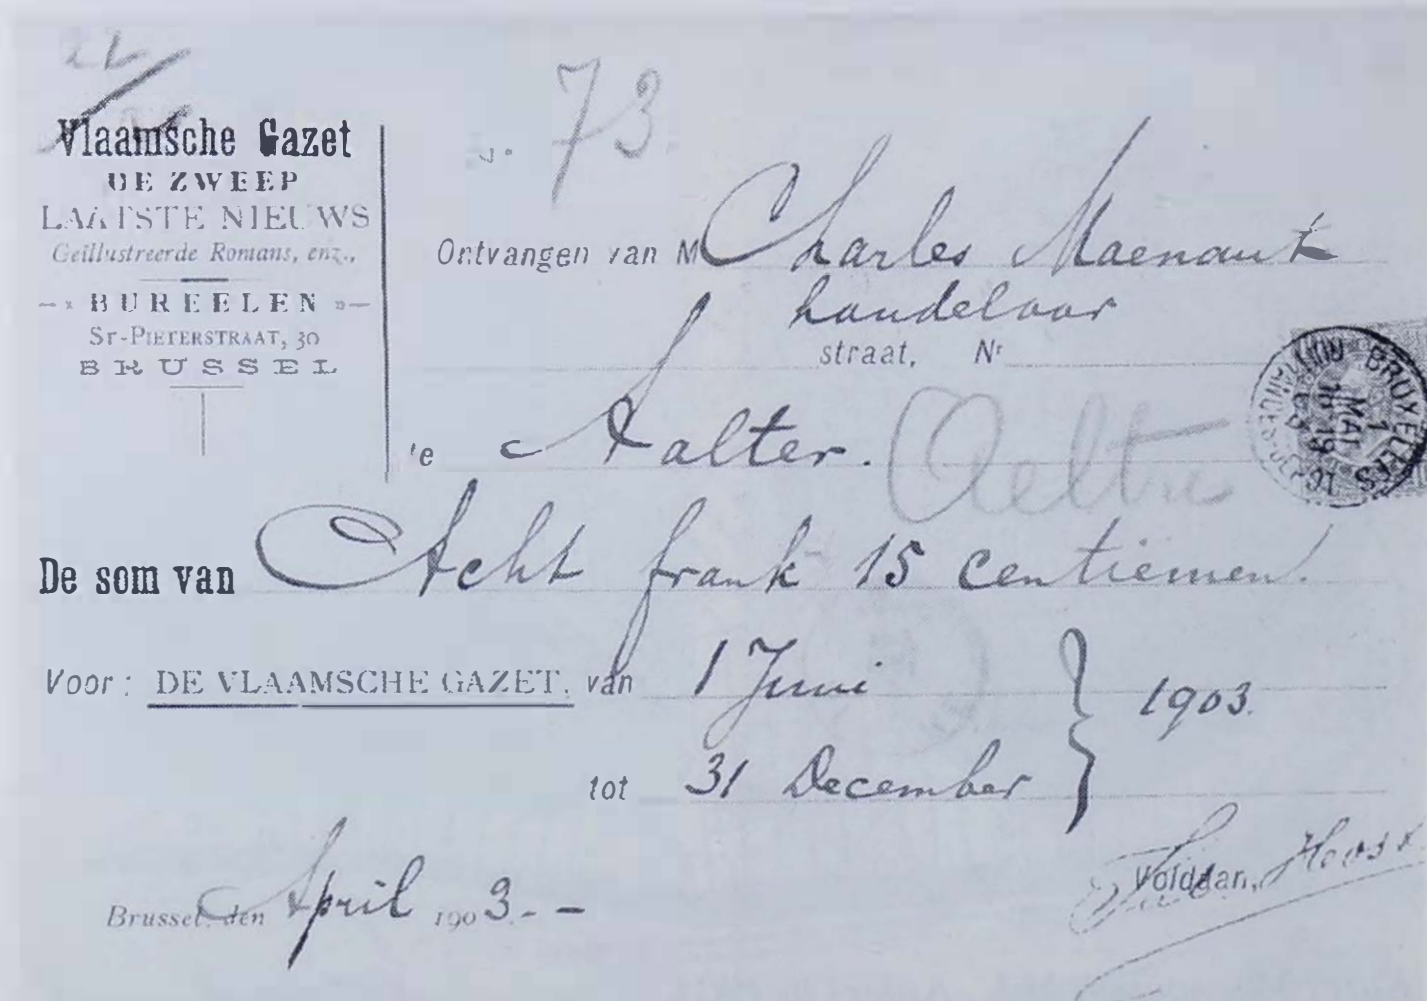 73.
Vlaamsche Gazet
DE ZWEEP
LAATSTE NIEUWS
Geïllustreerde Romans, enz.,
BUREELEN
St-PIETERSTRAAT, 30
BRUSSEL
Ontvangen van M Charles Maenaut
handelaar
straat, Nr
te Aalter. Aeltre
BRUXELLES
1 MAI
De som van Acht frank 15 centiemen.
Voor : DE VLAAMSCHE GAZET, van 1 Juni
1903.
tot 31 December
Voldaan,
Brussel, den April 1903.--